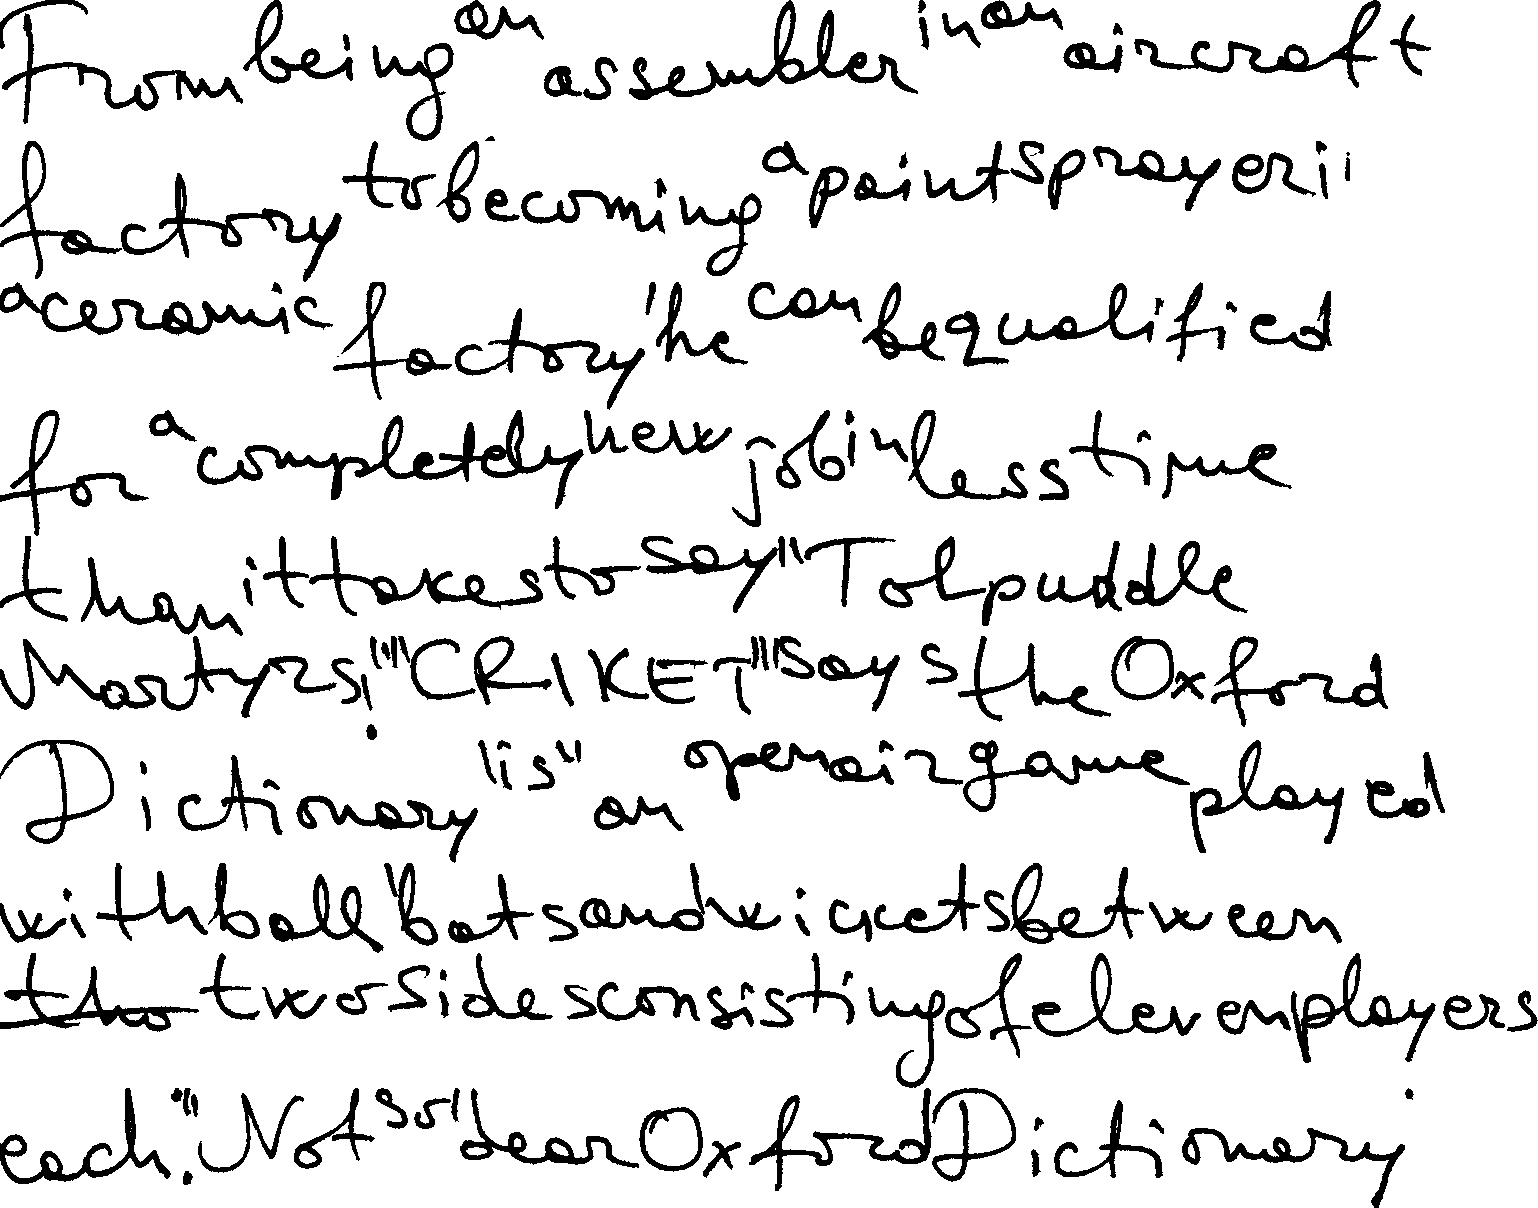 From being an assembler in an aircraft
factory to becoming a paint sprayer i
a ceramic factory, he can be qualified
for a completely new job in less time
than it takes to say "Tolpuddle
Martyrs!" "CRIKET" says the Oxford
Dictionary "is" an open air game played
with ball, bats and wickets between
tho two sides consisting of eleven players
each." Not so, dear Oxford Dictionary.